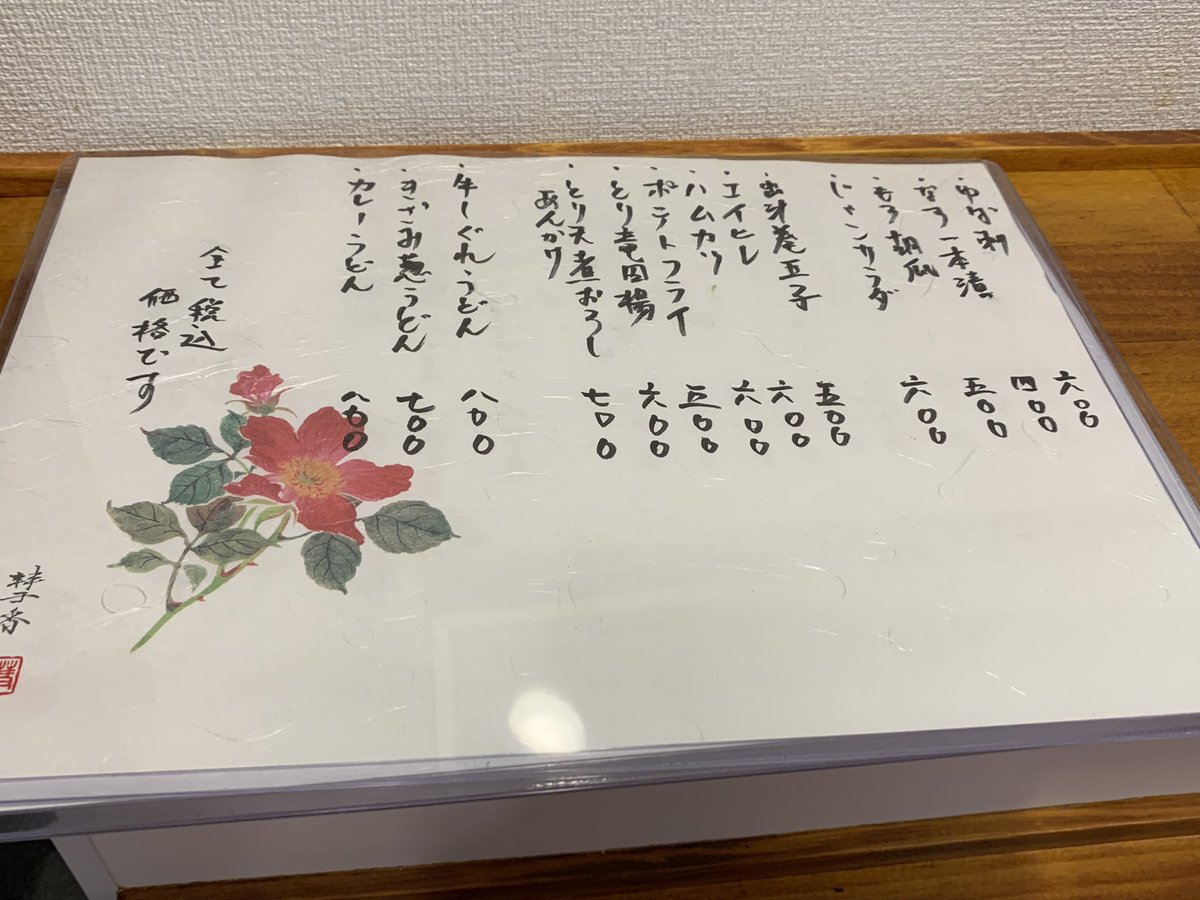 ・ゆば刺 六〇〇
・なす一本漬 四〇〇
・もろ胡瓜 五〇〇
・じゃこサラダ 六〇〇
・出汁巻玉子 五〇〇
・エイヒレ 六〇〇
・ハムカツ 六〇〇
・ポテトフライ 五〇〇
・とり竜田揚 六〇〇
・とり天煮おろし 七〇〇
あんかけ
・牛しぐれうどん 八〇〇
・きざみ葱うどん 七〇〇
・カレーうどん 八〇〇
全て税込
価格です